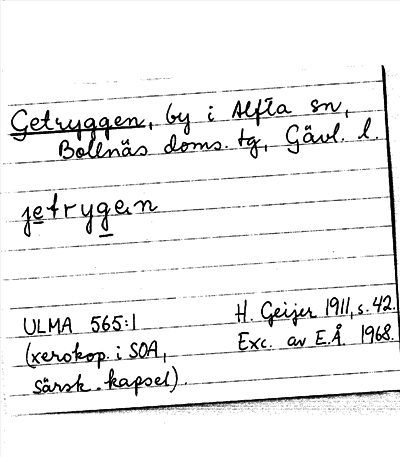 Getryggen, by i Alfta sn,
Bollnäs doms. tg, Gävl. l.
jetrygen
ULMA 565:1
(xerokop. i SOA,
särsk. kapsel).
H. Geijer 1911, s. 42.
Exc. av E.Å. 1968.